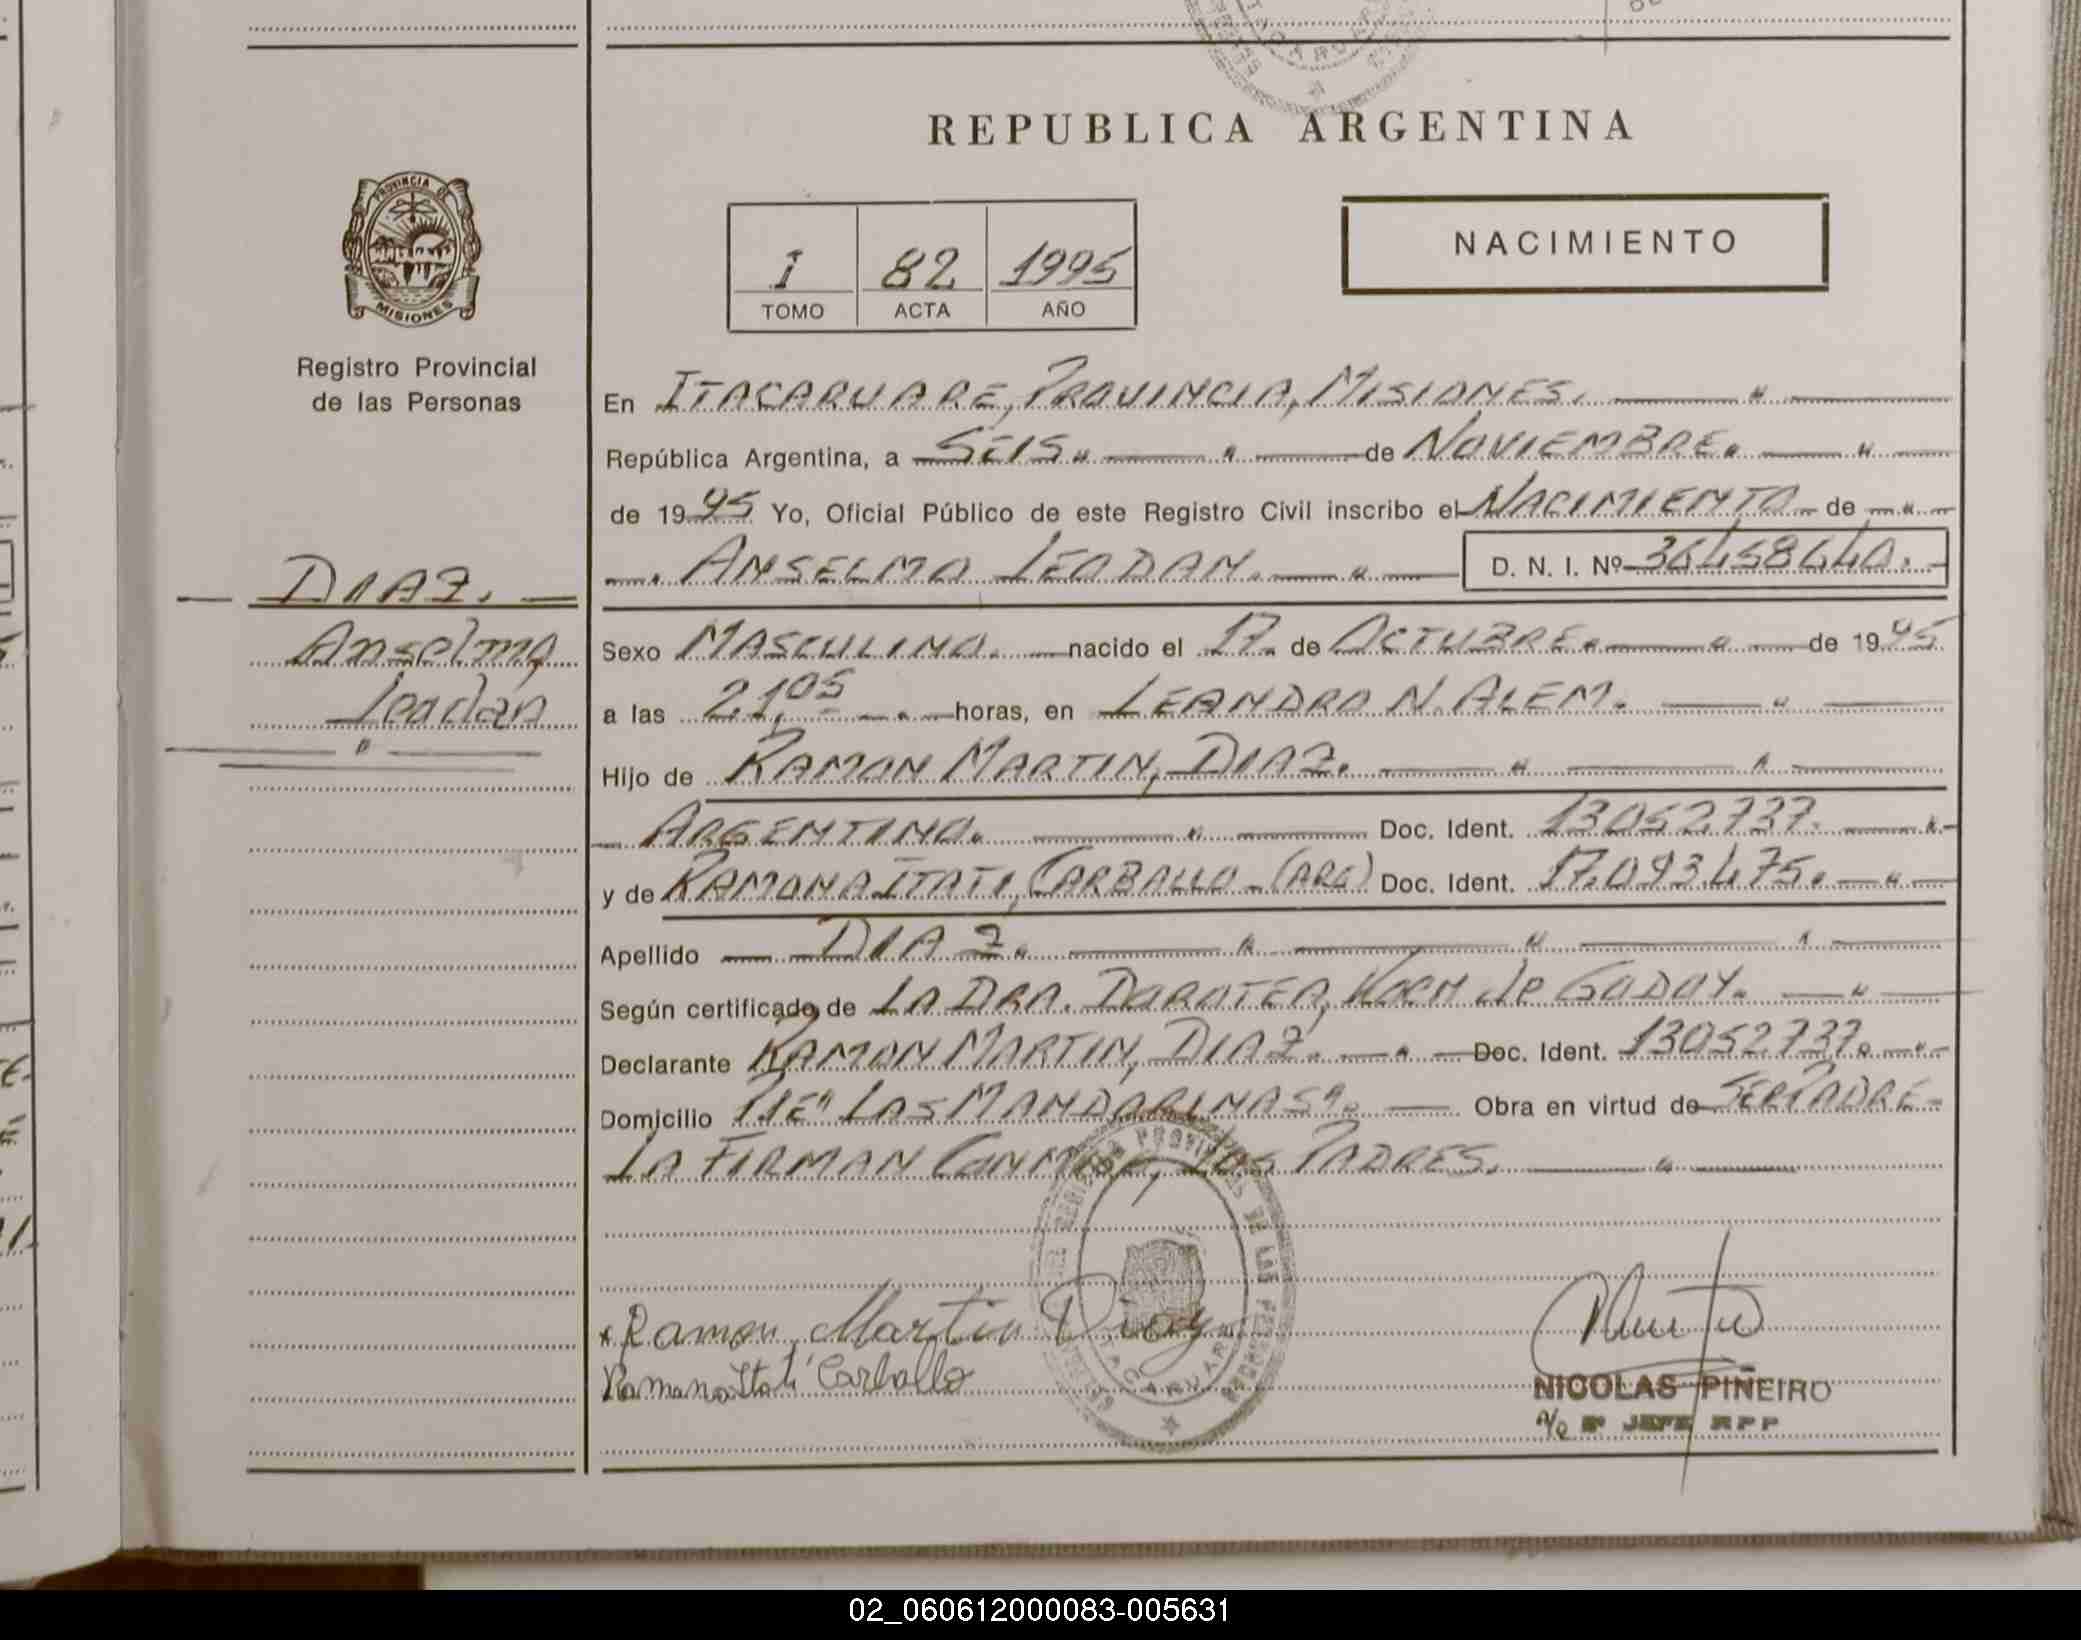 REPUBLICA ARGENTINA
PROVINCIA DE
MISIONES
Registro Provincial
de las Personas
1 82 1995
TOMO ACTA AÑO
NACIMIENTO
En ITACARUARE, PROVINCIA, MISIONES.
República Argentina, a SEIS. de NOVIEMBRE.
de 1995 Yo, Oficial Público de este Registro Civil inscribo el NACIMIENTO de
ANSELMO LEODAN. D. N. I. Nº
DIAZ.
Anselmo
Leodán
Sexo MASCULINO. nacido el 17. de OCTUBRE. de 1995
a las 21,05 horas, en LEANDRO N. ALEM.
Hijo de RAMON MARTIN, DIAZ.
ARGENTINO. Doc. Ident. 13052737.
y de RAMONA ITATI, CARBALLO - (ARG) Doc. Ident. 17.093.475.
Apellido DIAZ.
Según certificado de LA DRA. DOROTEA, KOCH de GODOY.
Declarante RAMON MARTIN, DIAZ. Doc. Ident. 13052737.
Domicilio "LAS MANDARINAS". Obra en virtud de SER PADRE
LA FIRMAN CONMIGO, LOS PADRES.
Ramon Martin Diaz
Ramona Itatí Carballo
ITACARUARE
NICOLAS PIÑEIRO
JEFE RPP
02_060612000083-005631